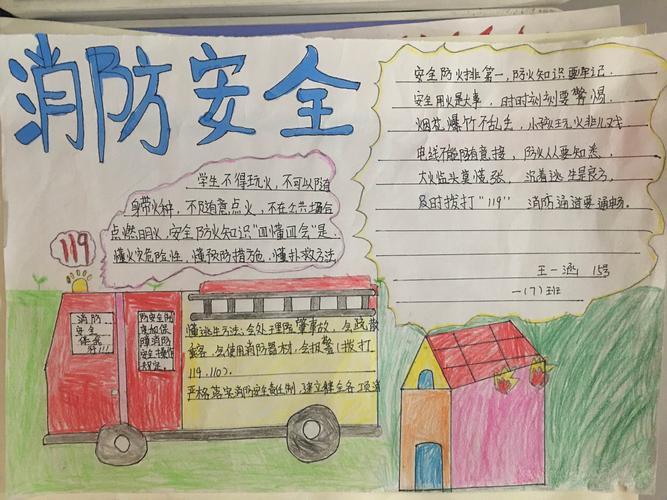 消防安全
学生不得玩火，不可以随
身带火种，不随意点火，不在公共场合
点燃明火，安全防火知识"四懂四会"是：
懂火灾危险性，懂预防措施，懂扑救方法
119
消防
安全
懂逃生方法；会处理险肇事故，会疏散
乘客，会使用消防器材，会报警（拨打
119、110）。
严格落实消防安全责任制，建立健全各项消
安全防火排第一，防火知识要牢记。
安全用火是大事，时时刻刻要警惕。
烟花爆竹不乱丢，小孩玩火非儿戏
电线不能随意接，防火人人要知悉，
大火临头莫慌张，沉着逃生是良方，
及时拨打"119"消防通道要通畅。
王一涵 15号
一(7)班